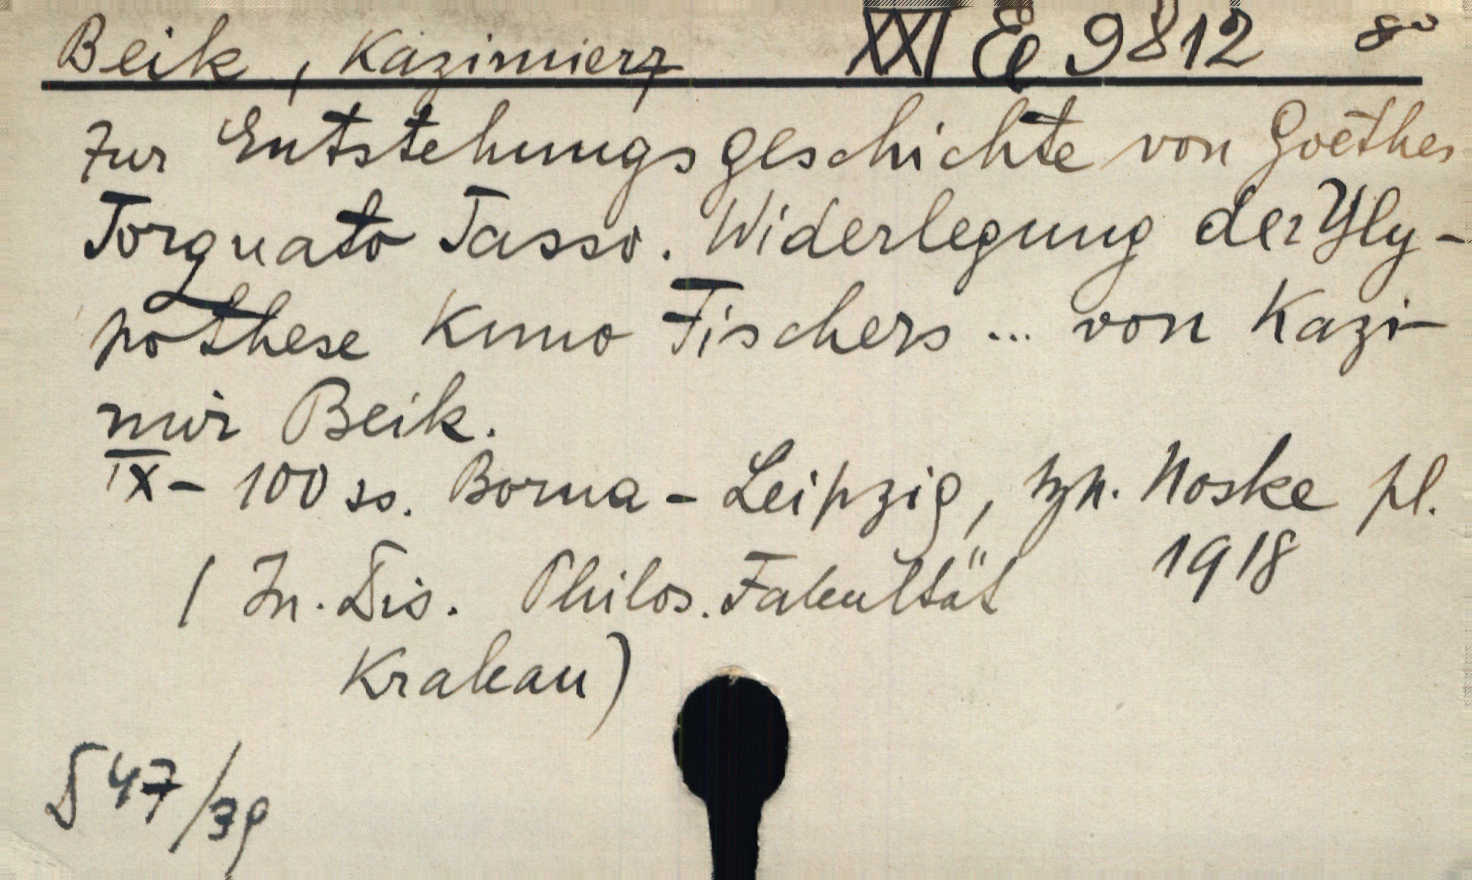 Beik, Kazimierz XXI E 9812 8°
Zur Entstehungsgeschichte von Goethes
Torquato Tasso. Widerlegung der Hy-
pothese Kuno Fischers ... von Kazi-
mir Beik.
IX - 100 ss. Borna - Leipzig, typ. Noske pl.
1918
( In. Dis. Philos. Fakultät
Krakau)
D 47/39